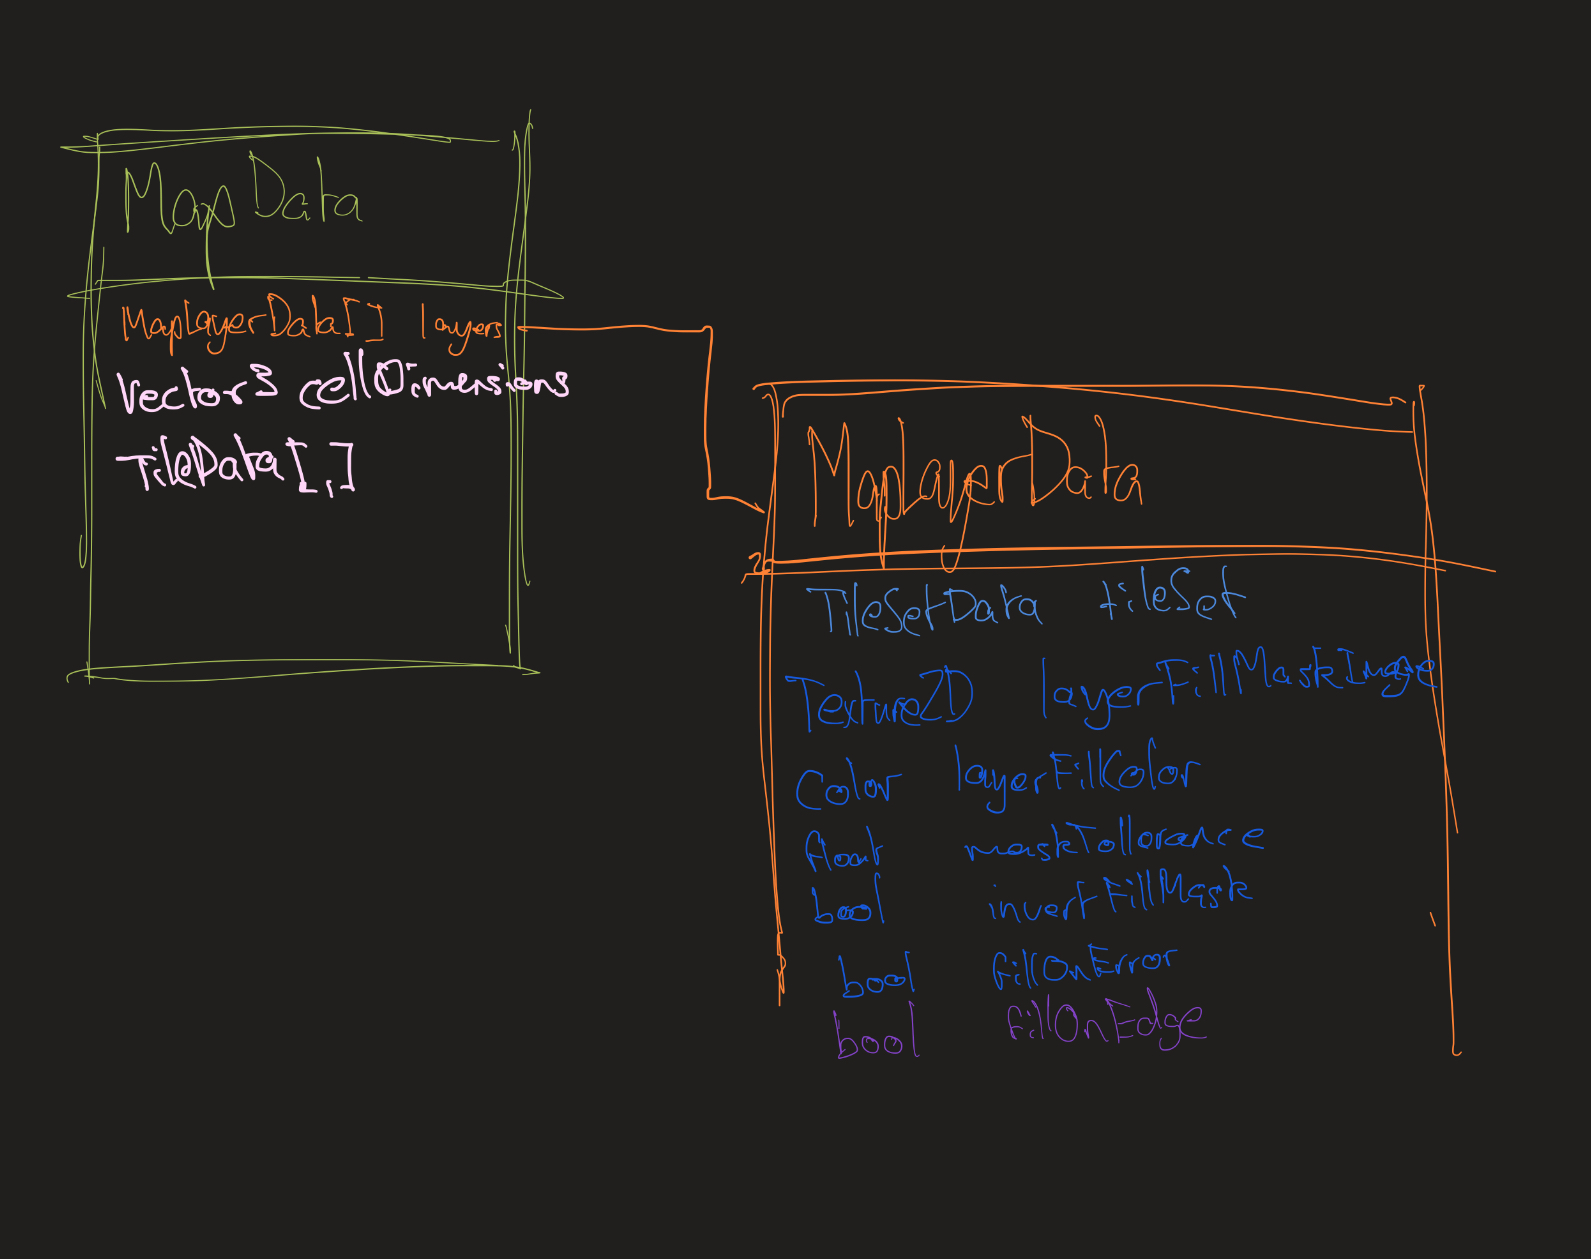 MapData
MapLayerData[] layers
Vector3 cellDimensions
TileData[,]
MapLayerData
TileSetData tileSet
Texture2D layerFillMaskImage
Color layerFillColor
float maskTollorance
bool invertFillMask
bool fillOnError
bool fillOnEdge